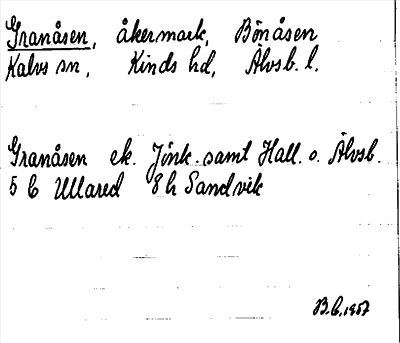 Granåsen, åkermark, Bönåsen
Kalvs sn, Kinds hd, Älvsb. l.
Granåsen ek. Jönk. samt Hall. o. Älvsb.
5 C Ullared 8 h Sandvik
B.C. 1957